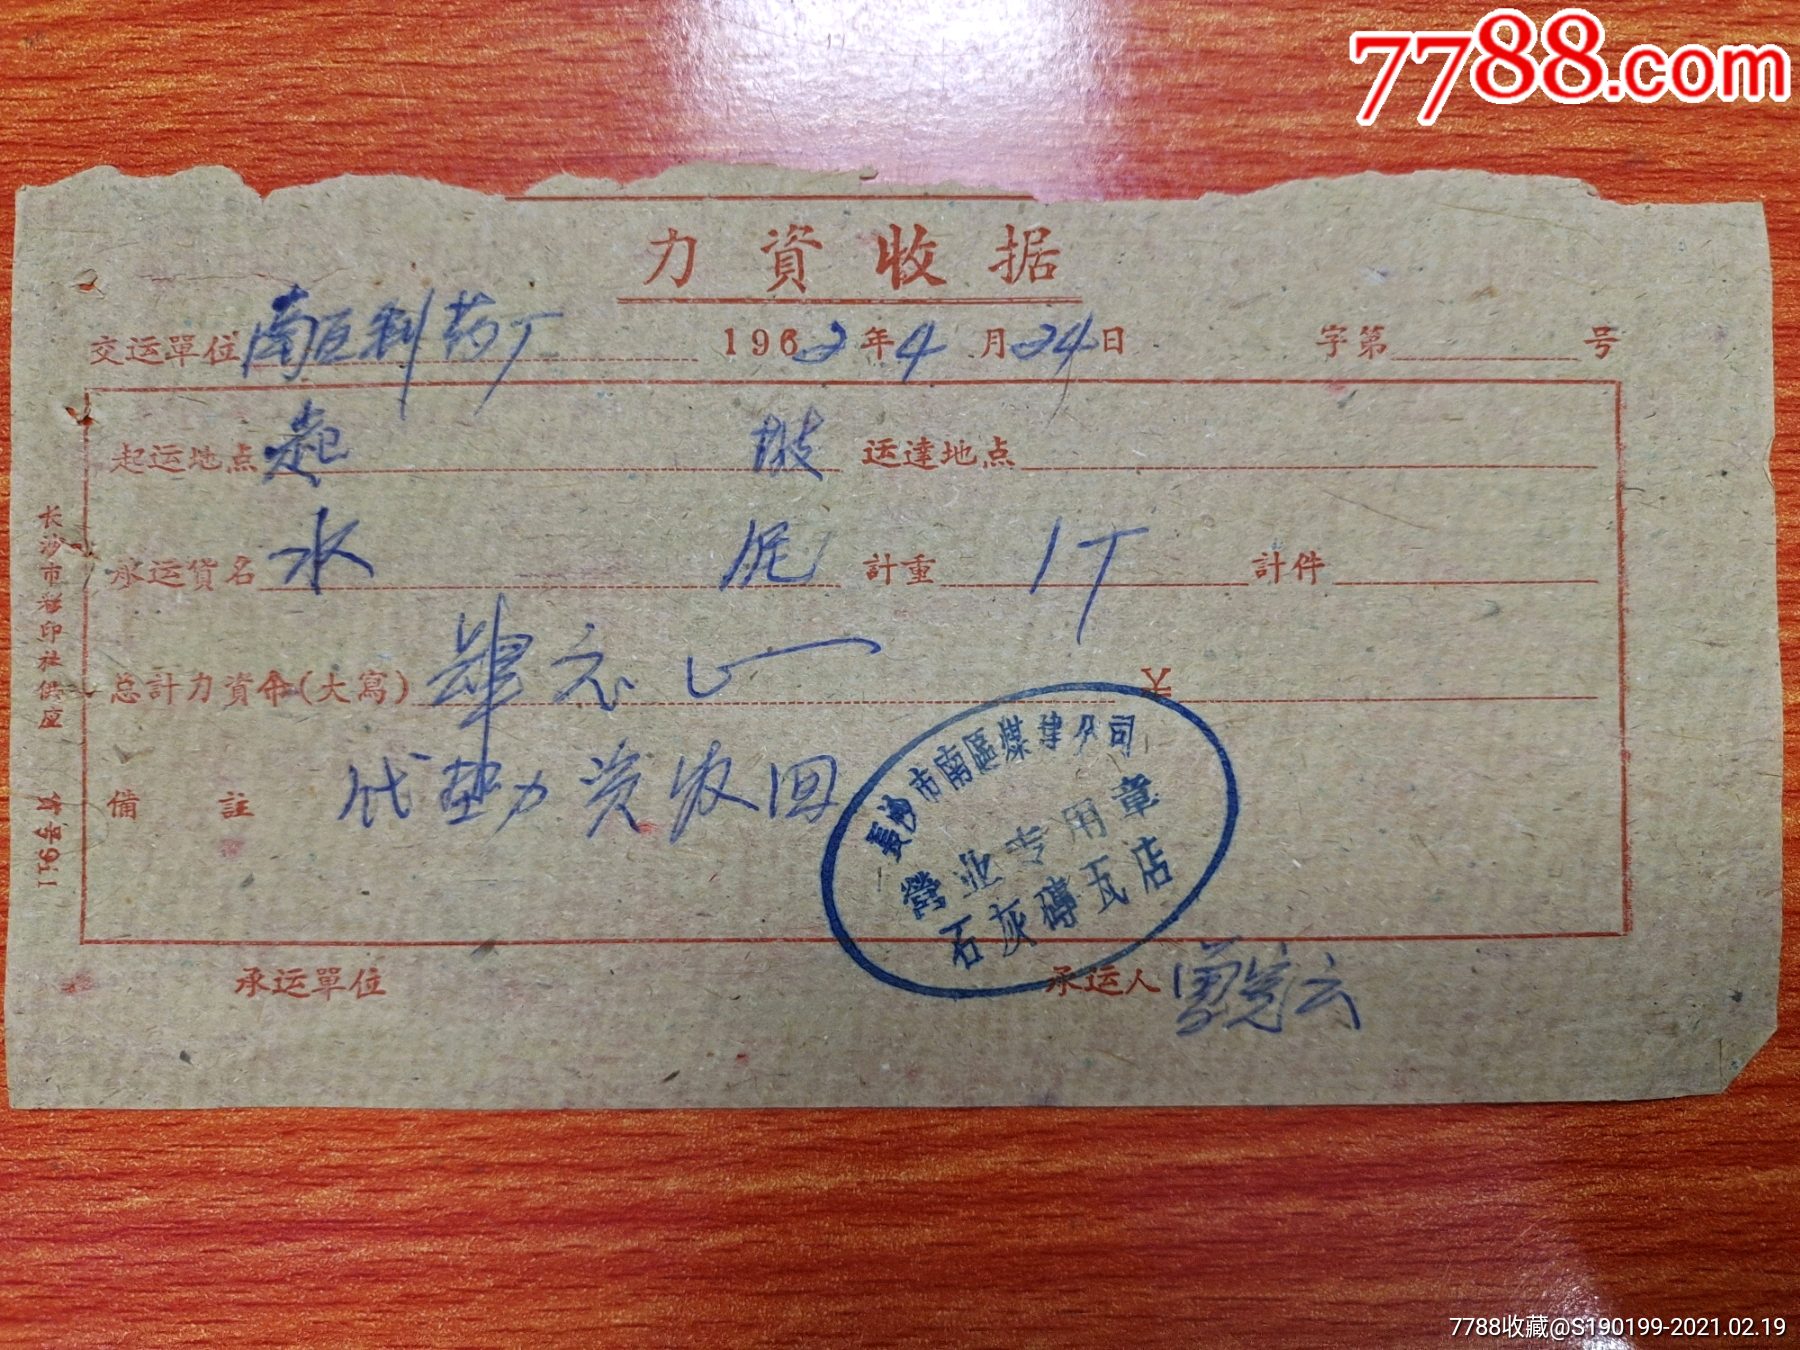 7788.com
力資收据
交运單位 南区制药厂 1962年4月24日 字第 号
起运地点 起坡 运達地点
承运貨名 水泥 計重 1T 計件
总計力資币(大寫) 肆元 ¥
備註 代垫力资收回
長沙市南區煤建公司
營业专用章
石灰磚瓦店
承运單位 承运人
长沙市 印社供应 貨号911
7788收藏@S190199-2021.02.19